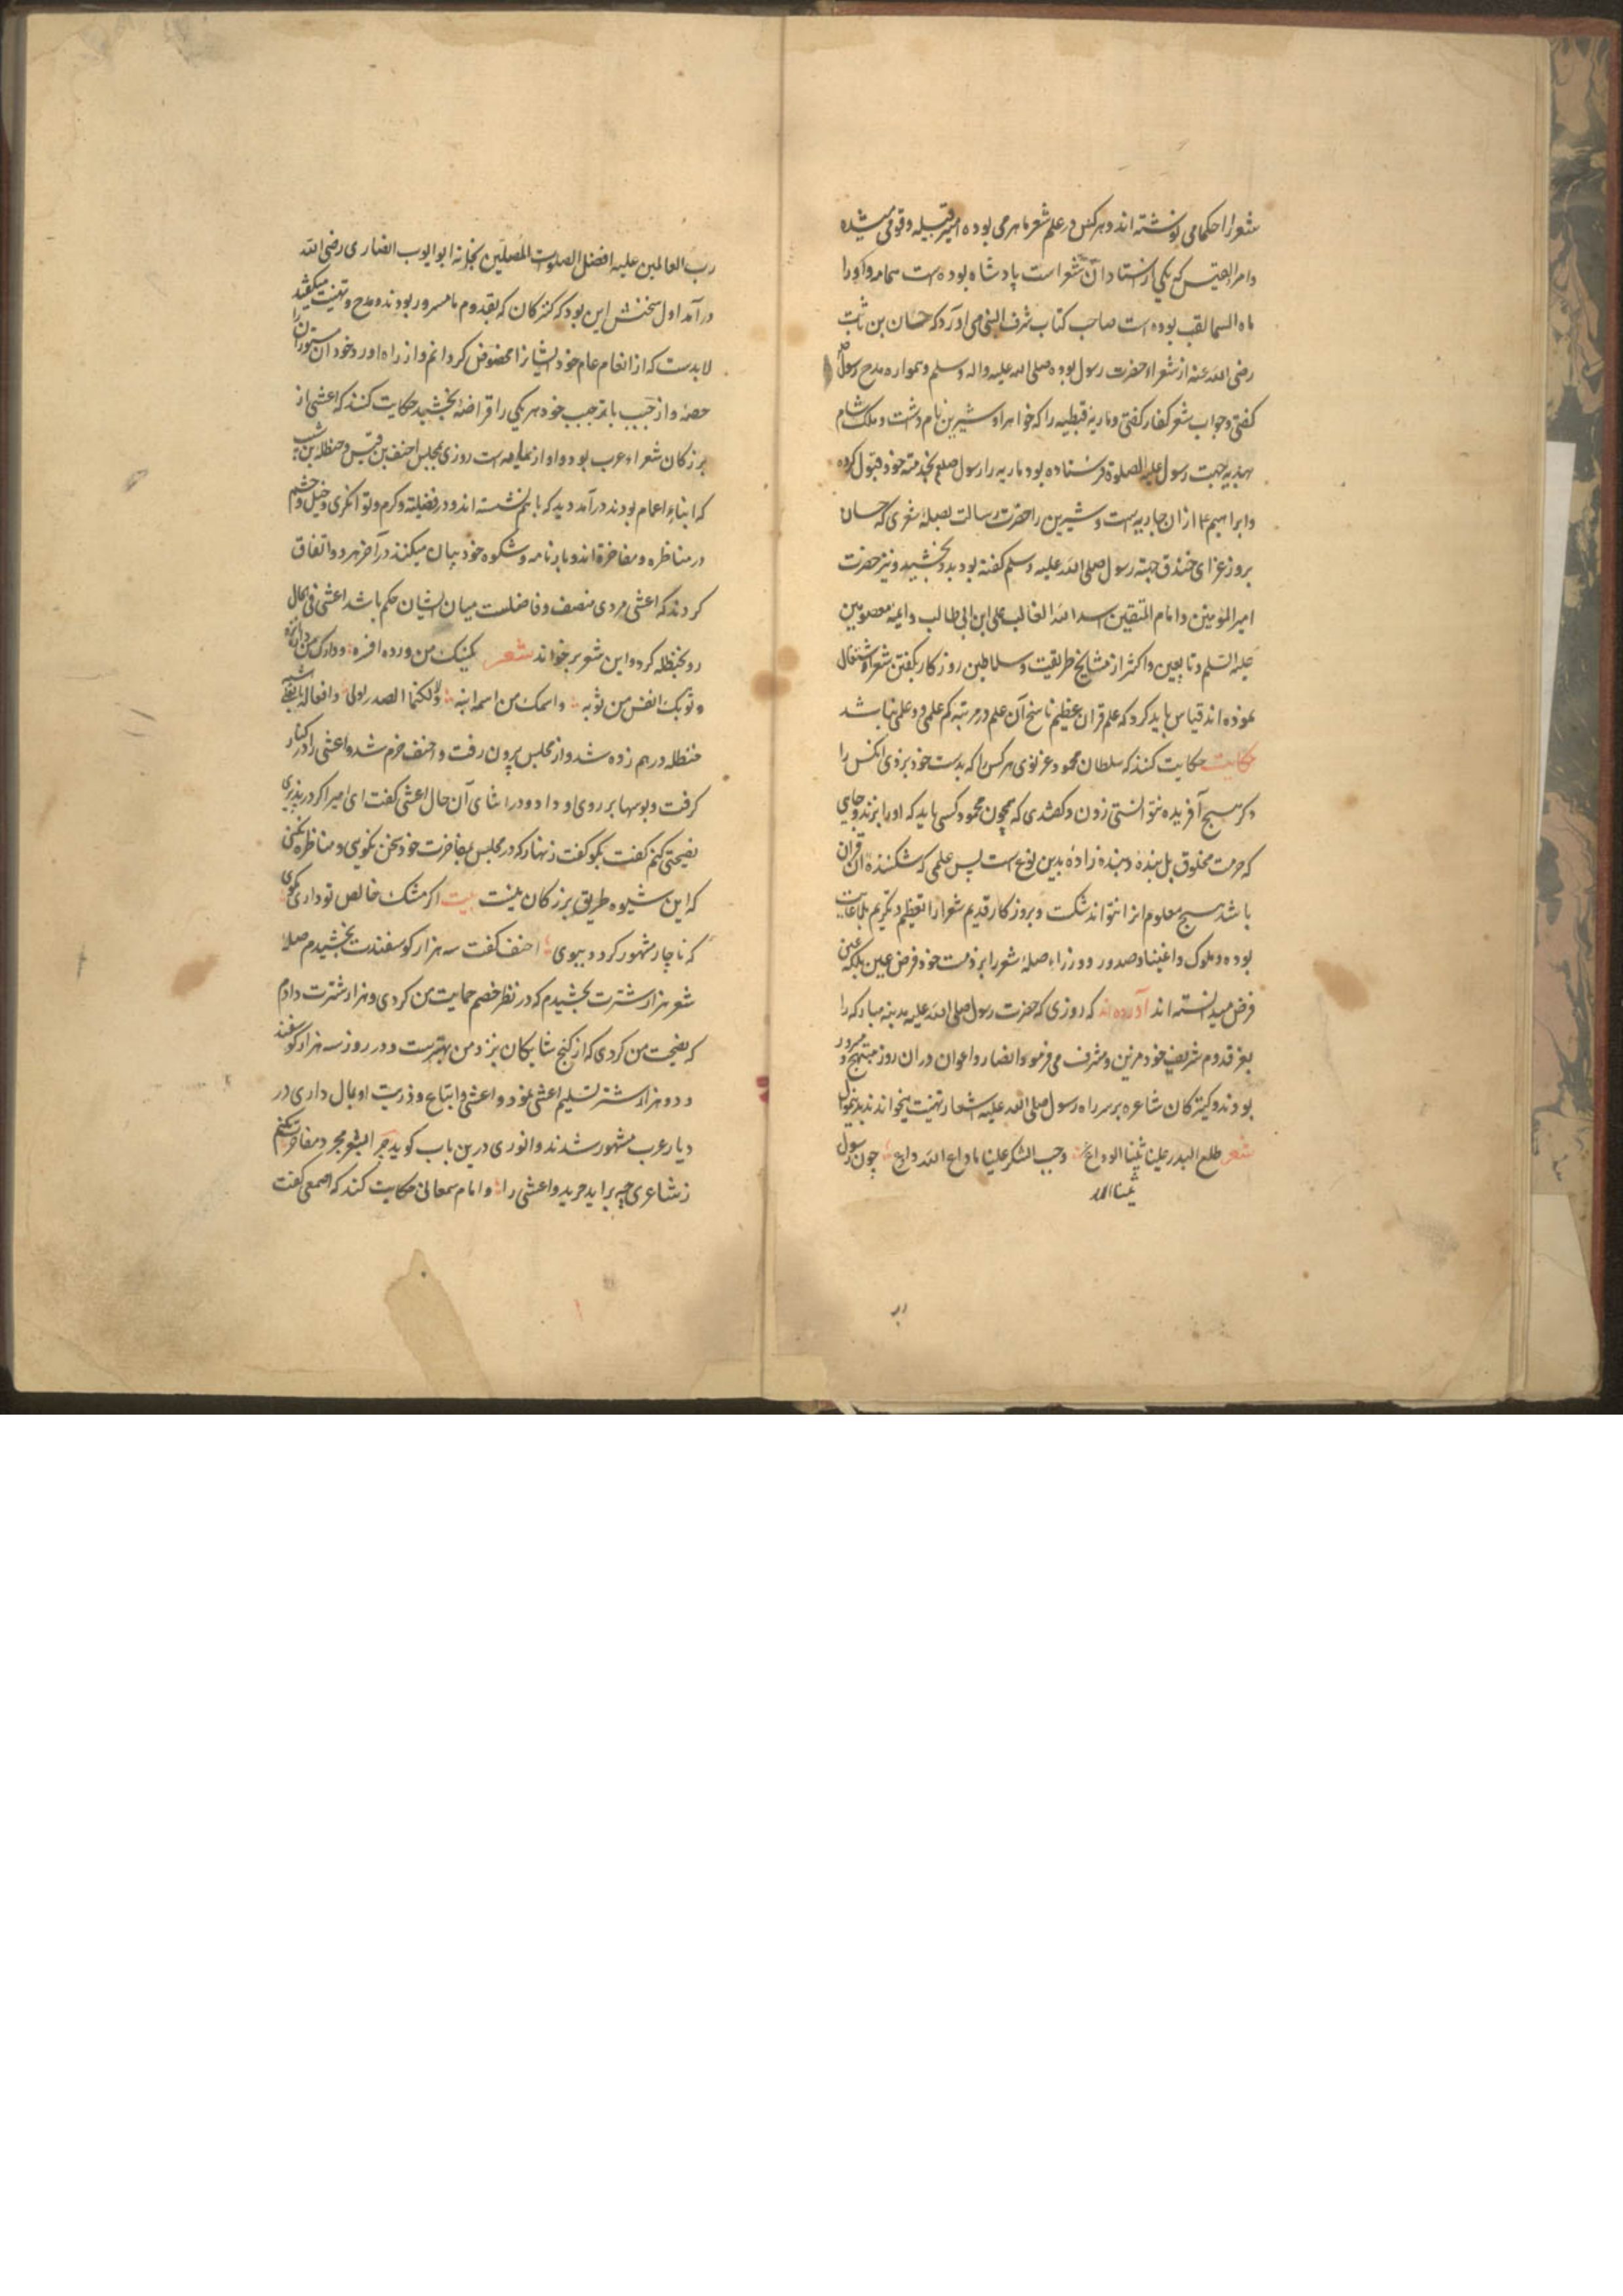 شعرا را حکما می نوشته اند و هرکس در علم شعر ماهر می بوده امیر قبیله و قوم میشده
و امراءالقیس که یکی از استادان شعر است پادشاه بوده است و او را
ماء السما لقب بوده است صاحب کتاب شرف النبی می آورد که حسان بن ثابت
رضی الله عنه از شعراء حضرت رسول بوده صلی الله علیه واله وسلم و همواره مدح رسول
کفتی و جواب شعر کفار کفتی و ماریه قبطیه را که خواهر او شیرین نام داشت و ملک شام
بهدیه جهت رسول علیه الصلوة فرستاده بود ماریه را رسول صلعم بخدمته خود قبول کرده
و ابراهیم ازان جاریه است و شیرین را حضرت رسالت بصلهٔ شعری که حسان
بروز غزای خندق جهته رسول صلی الله علیه وسلم کفته بود بدو بخشید و نیز حضرت
امیر المومنین و امام المتقین اسد الله الغالب علی ابن ابی طالب و ایمهٔ معصومین
علیه السلم و تابعین و اکثر از مشایخ طریقت و سلاطین روزکار بکفتن شعر اشتغال
نموده اند قیاس باید کرد که علم قران عظیم ناسخ آن علم در مرتبه کم علمی و علمی نباشد
حکایت حکایت کنند که سلطان محمود غزنوی هر کس را که بدست خود بزدی انکس را
دکر هیچ آفریده نتوانستی زدن و کفتندی که همچون محمود کسی باید که او را بزند و جایی
که حرمت مخلوق بل بنده و بنده زاده بدین نوع است پس علمی که شکننده آن قران
باشد هیچ معلوم انرا نتواند شکست و بروزکار قدیم شعرا را تعظیم و تکریم بلاغایت
بوده و ملوک و اغنیا و صدور و وزرا صلهٔ شعر را بر ذمت خود فرض عین بلکه عین
فرض میدانسته اند آورده اند که روزی که حضرت رسول صلی الله علیه مدینه مبارکه را
بعز قدوم شریف خود مزین و مشرف می فرمود و انصار و اعوان دران روز مبتهج و مسرور
بودند و کنیزکان شاعره بر سر راه رسول صلی الله علیه اشعار تهنیت میخواندند بدینمنوال
شعر طلع البدر علینا ثنیا الوداع وجب الشکر علینا ما دعا الله داع چون رسول
ثنیات
رب
رب العالمین علیه افضل الصلوات المصلین بخانه ابو ایوب انصاری رضی الله
درآمد اول سخنش این بود که کنیزکان که بقدوم ما مسرور بودند و مدح و تهنیت میکفتند
لابد است که از انعام عام خود ایشانرا مخصوص کردانم و از راه آورد خود آن مستورات را
حصهٔ و از جیب خود هر یکی را قراضهٔ بخشید حکایت کنند که اعشی از
بزرکان شعراء عرب بود و او از است روزی بمجلس احنف بن قیس و حنظله بن
که ابناء اعمام بودند درآمد دید که با هم نشسته اند و در فضیلت و کرم و توانکری و خیل و حشم
در مناظره و مفاخرة اند و بارنامه و شکوه خود بیان میکنند در آخر هر دو اتفاق
کردند که اعشی مردی منصف و فاضلست میان ایشان حکم باشد اعشی فی الحال
رو بحنظله کرد و این شعر بر خواند شعر
و ثوبک انفس من ثوبه و اسمک من اسمه ولکنما الصدر اولی
حنظله درهم زده شد و از مجلس بیرون رفت و احنف خرم شد و اعشی را در کنار
کرفت و بوسها بر روی او داد و در اثنای آن حال اعشی کفت ای امیر اکر در پذیری
نصیحتی کنم کفت بکو کفت زنهار که در مجلس بمفاخرت خود سخن نکویی و مناظره نکنی
که این شیوه طریق بزرکان نیست بیت اکر مشک خالص تو داری مکوی
که ناچار مشهور کردد ببوی احنف کفت سه هزار کوسفندت بخشیدم صلهٔ
شعر هزار شترت بخشیدم که در نظر خصم حمایت من کردی و هزار شترت دادم
که نصیحت من کردی که از کنج شایکان نزد من بهترست و در روز سه هزار کوسفند
و دو هزار شتر تسلیم اعشی نمود و اعشی و اتباع و ذریت او بمال داری در
دیار عرب مشهور شدند و انوری درین باب کوید
ز شاعری چه برآید جریر و اعشی را و امام سمعانی حکایت کند که اصمعی کفت